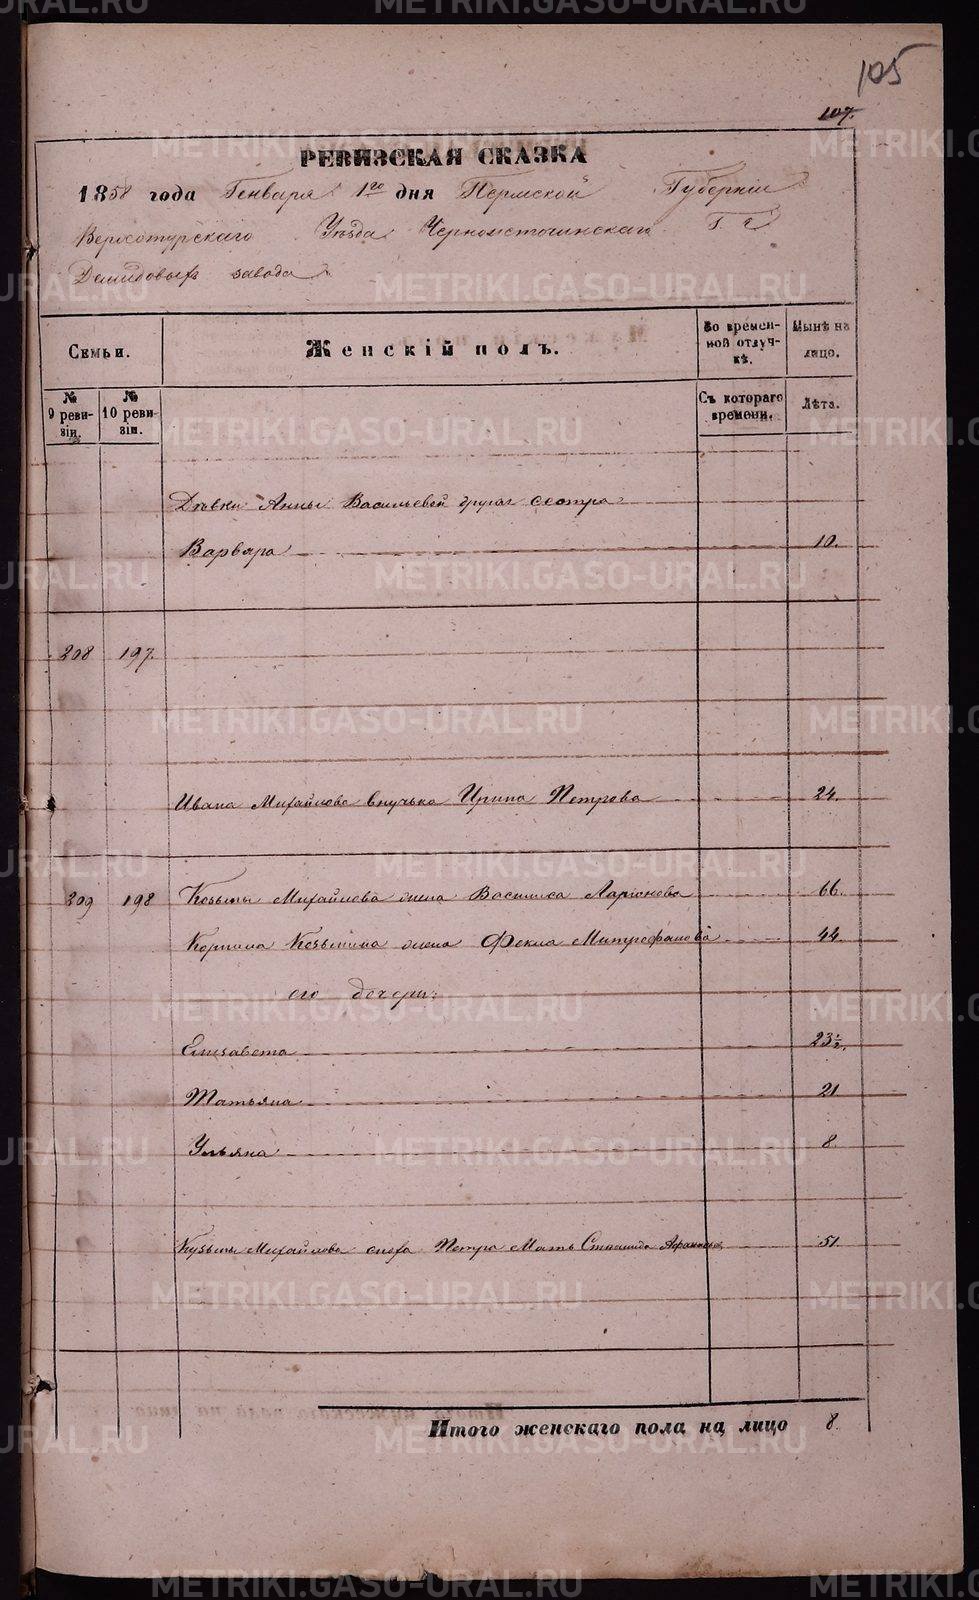 105
107.
РЕВИЗСКАЯ СКАЗКА
1858 года Генваря 1го дня Пермской Губерніи
Верхотурскаго Уѣзда Черноисточинскаго Г. г.
Демидовыхъ завода
Семьи.
Женскій полъ.
Во времен-
ной отлуч-
кѣ.
Нынѣ на
лицо.
№
9 реви-
зіи.
№
10 реви-
зіи.
Съ котораго
времени.
Лѣта.
Дѣвки Анны Васильевой другая сестра
Варвара 10.
208 197.
Ивана Михайлова внучька Ирина Петрова 24.
209 198 Козьмы Михайлова жена Василиса Ларіонова 66.
Козьмина жена Фекла Митрофанова 44.
его дочери:
Елисавета 23½.
Татьяна 21
Ульяна 8.
Кузьмы Михайлова снока Петра Мать 51.
Итого женскаго пола на лицо 8.
METRIKI.GASO-URAL.RU